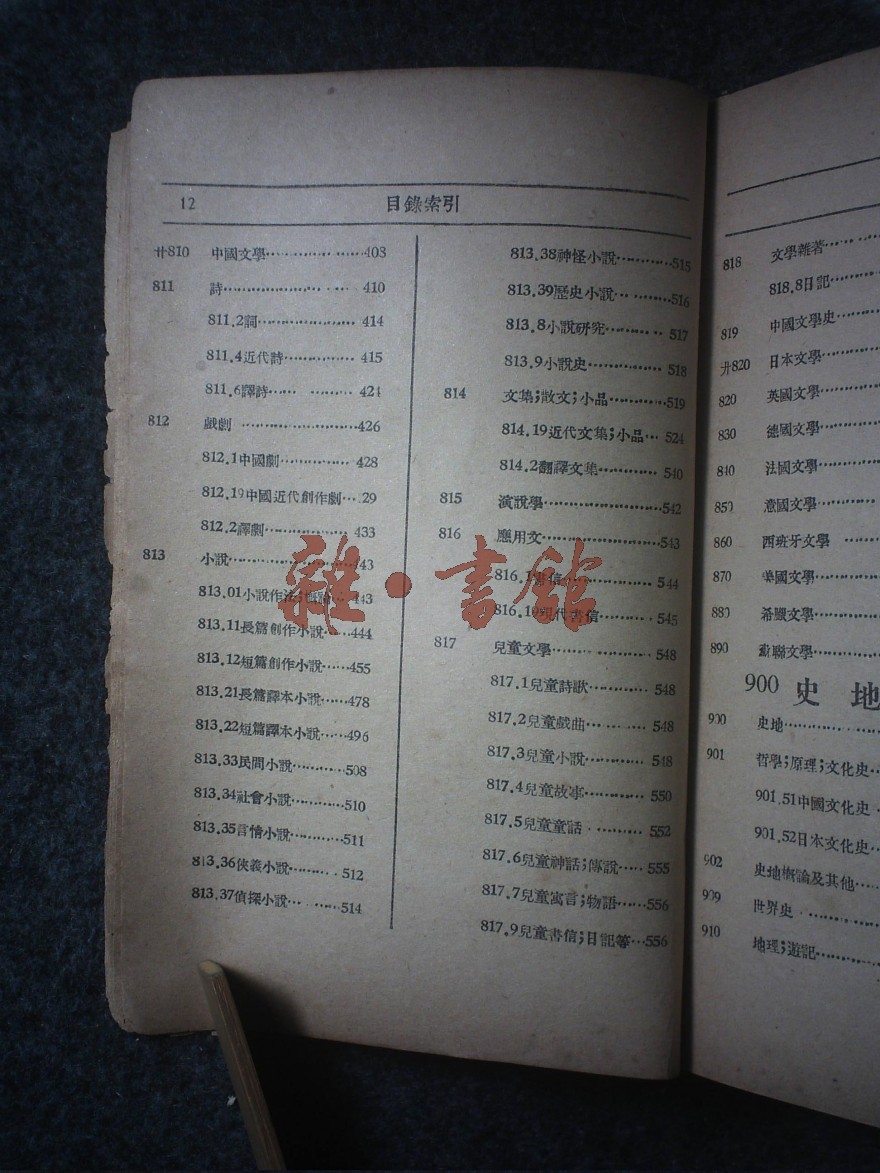 12
目錄索引
卄810 中國文學 403
811 詩 410
811.2詞 414
811.4近代詩 415
811.6譯詩 424
812 戲劇 426
812.1中國劇 428
812.19中國近代創作劇 29
812.2譯劇 433
813 小說 443
813.01小說作法;概論 443
813.11長篇創作小說 444
813.12短篇創作小說 455
813.21長篇譯本小說 478
813.22短篇譯本小說 496
813.33民間小說 508
813.34社會小說 510
813.35言情小說 511
813.36俠義小說 512
813.37偵探小說 514
813.38神怪小說 515
813.39歷史小說 516
813.8小說研究 517
813.9小說史 518
814 文集;散文;小品 519
814.19近代文集;小品 524
814.2翻譯文集 540
815 演說學 542
816 應用文 543
816.1書信 544
816.19現代書信 545
817 兒童文學 548
817.1兒童詩歌 548
817.2兒童戲曲 548
817.3兒童小說 548
817.4兒童故事 550
817.5兒童童話 552
817.6兒童神話;傳說 555
817.7兒童寓言;物語 556
817.9兒童書信;日記等 556
雜·書館
818 文學雜著
818.8日記
819 中國文學史
卄820 日本文學
820 英國文學
830 德國文學
840 法國文學
850 意國文學
860 西班牙文學
870 美國文學
880 希臘文學
890 蘇聯文學
900 史地
900 史地
901 哲學;原理;文化史
901.51中國文化史
901.52日本文化史
902 史地概論及其他
909 世界史
910 地理;遊記